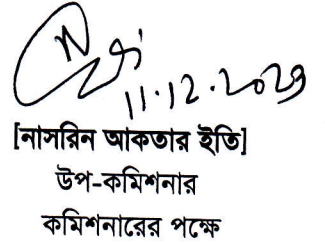 11.12.2023
[নাসরিন আকতার ইতি]
উপ-কমিশনার
কমিশনারের পক্ষে